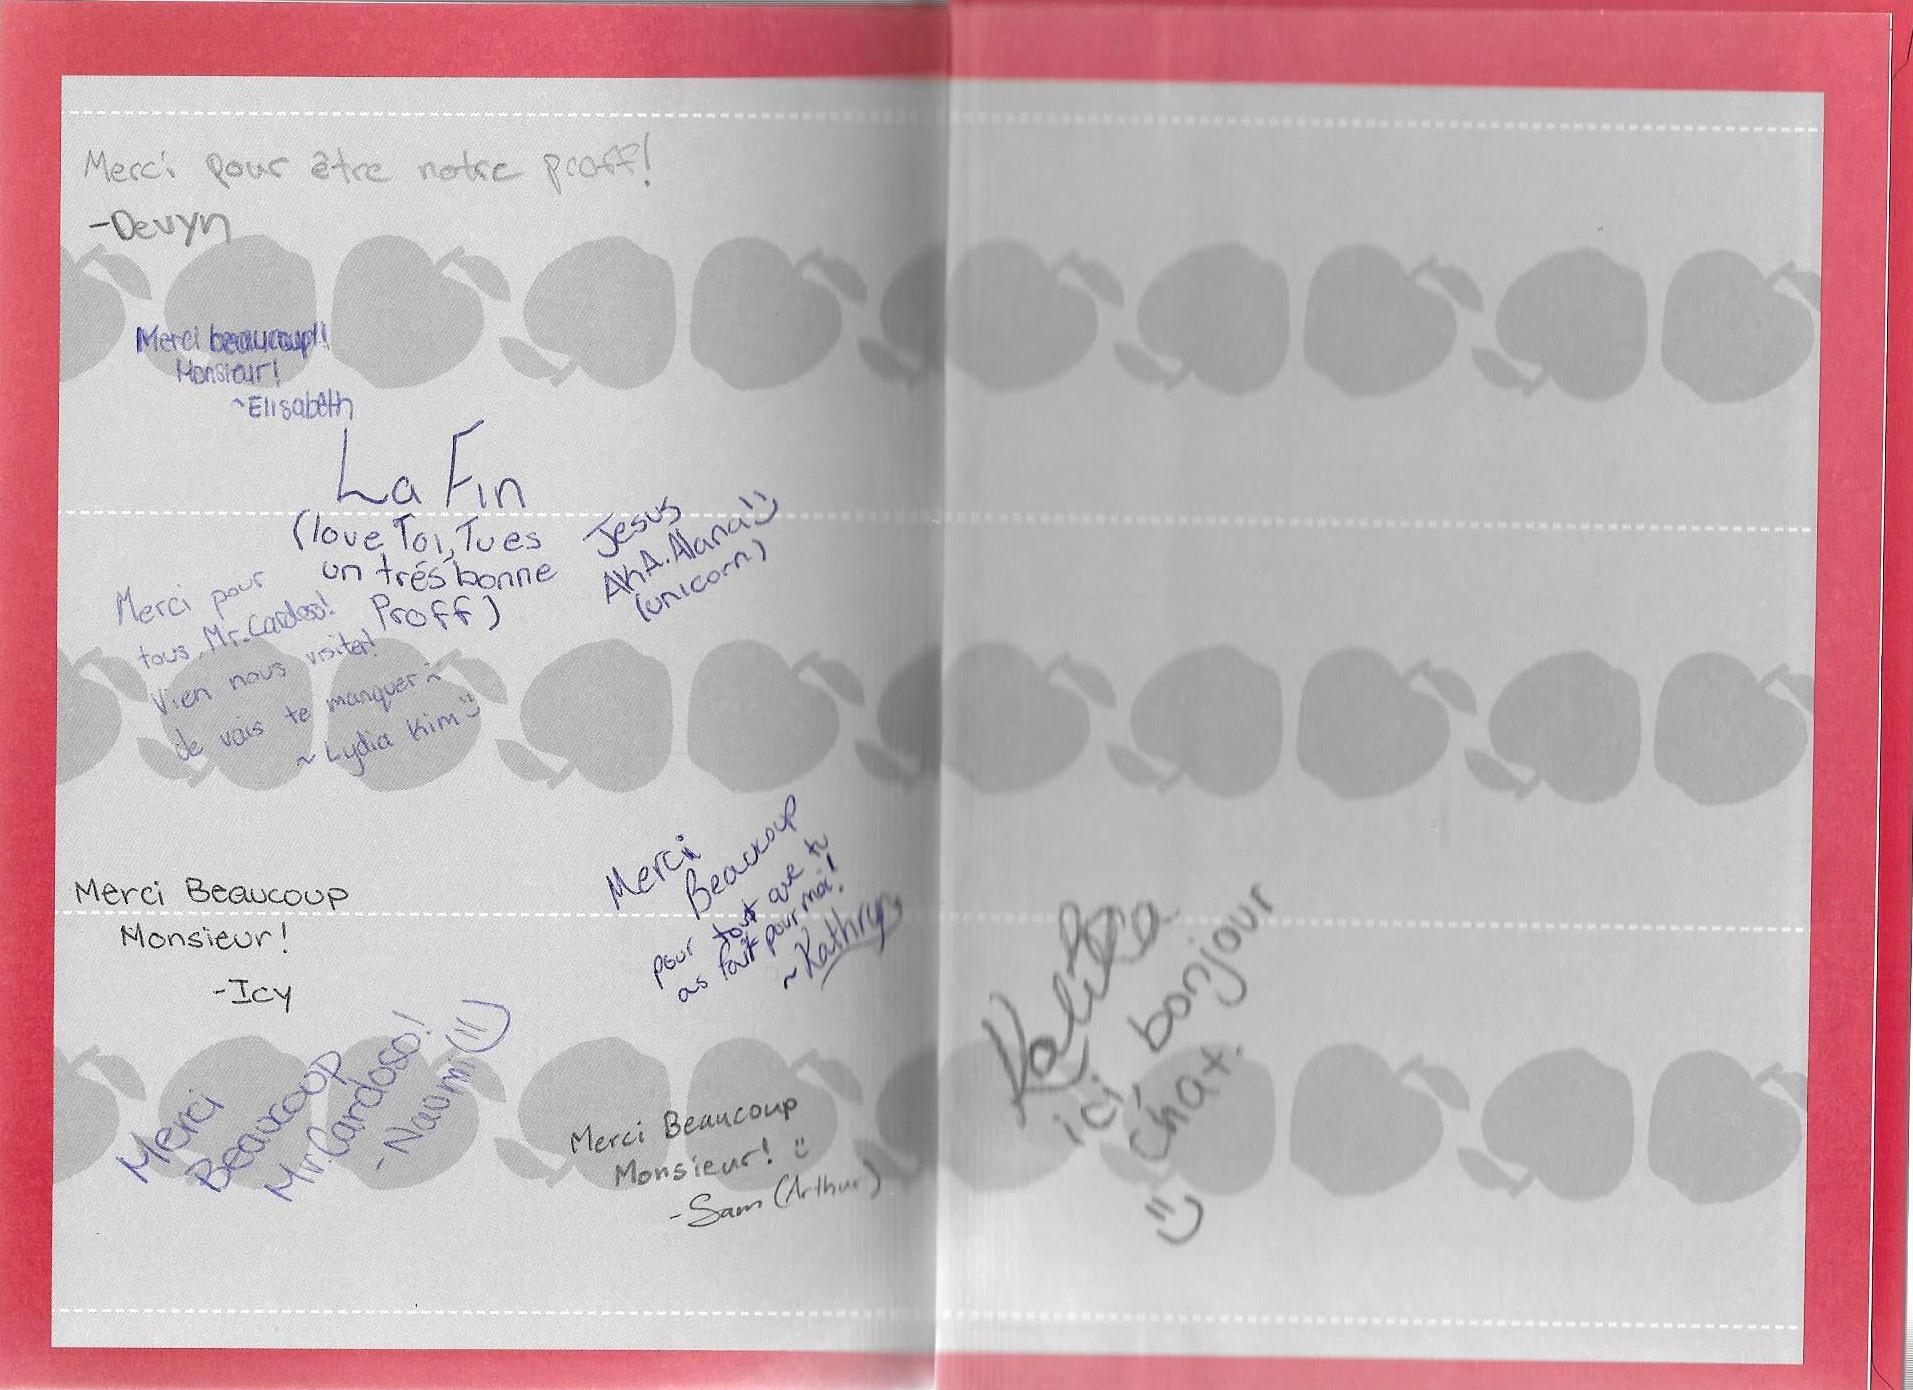 Merci pour être notre proff!
-Devyn
Merci beaucoup!!
Monsieur!
~Elisabeth
La Fin
(love Toi, Tu es
un trés bonne
Proff)
Jesus
AKA. Alana!
(unicorn)
Merci pour
tous Mr. Cardoso!
Vien nous visiter!
Je vais te manquer
~ Lydia Kim
Merci Beaucoup
Monsieur!
-Icy
Merci
Beaucoup
pour tout que tu
as fait pour moi!
~Kathryn
Merci
Beaucoup
Mr. Cardoso!
-Naomi
Merci Beaucoup
Monsieur!
-Sam (Arthur)
ici bonjour
chat.